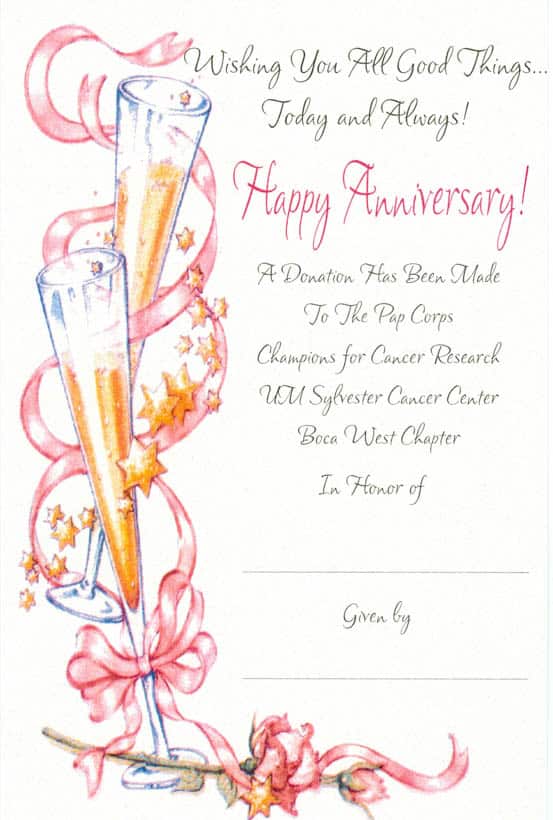 Wishing You All Good Things...
Today and Always!
Happy Anniversary!
A Donation Has Been Made
To The Pap Corps
Champions for Cancer Research
UM Sylvester Cancer Center
Boca West Chapter
In Honor of
Given by